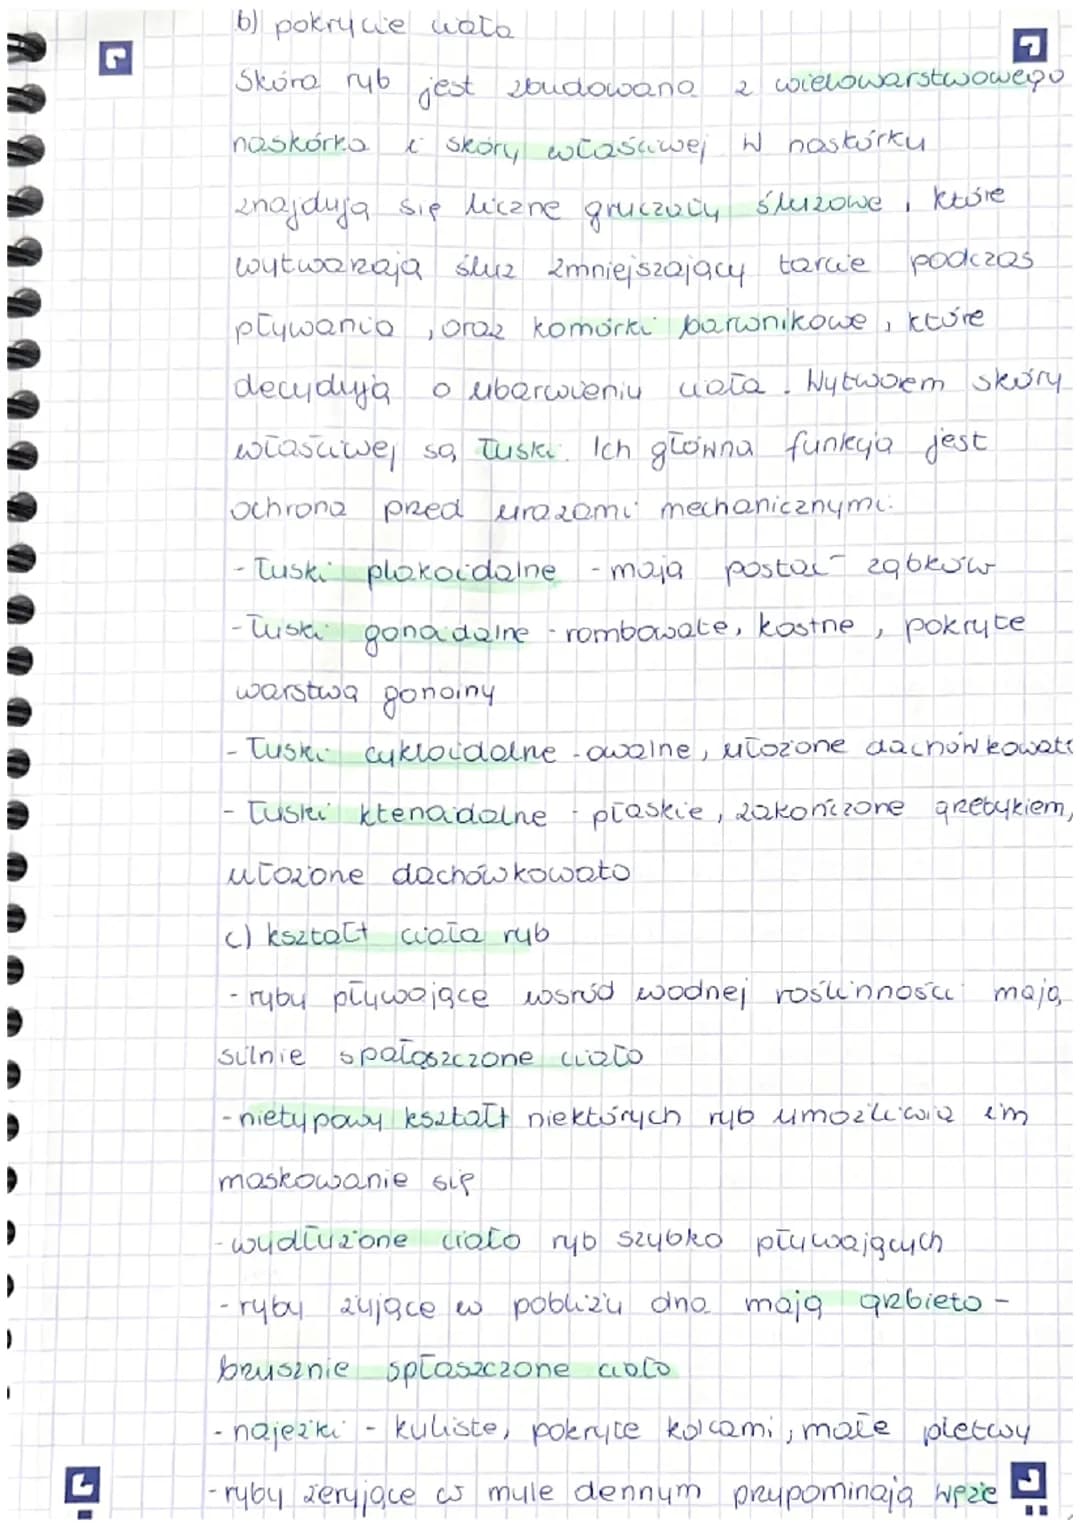 b) pokrycie ciała
Skóra ryb jest zbudowana z wielowarstwowego
naskórka i skóry właściwej W naskórku
znajdują się liczne gruczoły śluzowe, które
wytwarzają śluz zmniejszający tarcie podczas
pływania, oraz komórki barwnikowe, które
decydują o ubarwieniu ciała. Wytworem skóry
właściwej są łuski. Ich główną funkcją jest
ochrona przed urazami mechanicznymi.
- łuski plakoidalne - mają postać ząbków
- łuski gonoidalne - rombowate, kostne, pokryte
warstwą gonoiny
- łuski cykloidalne - owalne, ułożone dachówkowato
- łuski ktenoidalne - płaskie, zakończone grzebykiem,
ułożone dachówkowato
c) kształt ciała ryb
- ryby pływające wsród wodnej roślinności mają
silnie spałaszczone ciało
- nietypowy kształt niektórych ryb umożliwia im
maskowanie się
- wydłużone ciało ryb szybko pływających
- ryby żyjące w pobliżu dna mają grzbieto -
brzusznie spłaszczone ciało
- najeżki - kuliste, pokryte kolcami, małe płetwy
- ryby żerujące w mule dennym przypominają węże